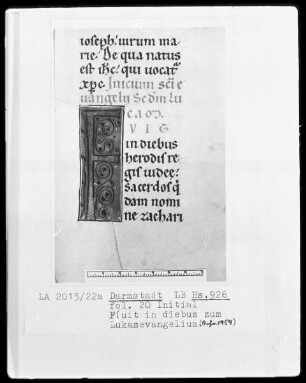 ioseph. uirum ma
rie. De qua natus
est ihc. qui uocat
xpc. Inicium sci e
uangelii Scdm lu
cam
V I G
in diebus
herodis re
gis iudee.
sacerdos q
dam nomi
ne zachari
LA 2013/22a Darmstadt LB Hs.926
fol. 20 Initial
F(uit in diebus zum
Lukasevangelium